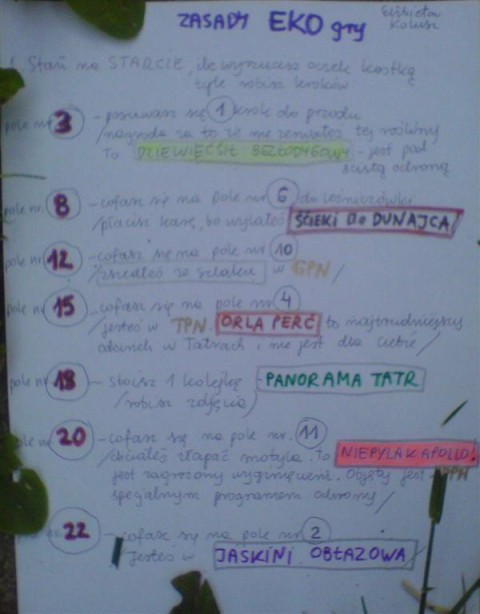 ZASADY EKO gry
Elżbieta
1. Stań na STARCIE, ile wyrzucisz oczek kostką
tyle robisz kroków
pole nr 3 - posuwasz się 1 krok do przodu
/nagroda za to że nie zerwałeś tej rośliny
To DZIEWIĘĆSIŁ BEZŁODYGOWY - jest pod
ścisłą ochroną
pole nr. 8 - cofasz się na pole nr. 6 do leśniczówki
/płacisz karę, bo wylałeś ŚCIEKI DO DUNAJCA/
pole nr 12 - cofasz się na pole nr. 10
/zszedłeś ze szlaku w GPN/
pole nr 15 - cofasz się na pole nr 4
/jesteś w TPN. ORLA PERĆ to najtrudniejszy
odcinek w Tatrach i nie jest dla ciebie/
pole nr 18 - stoisz 1 kolejkę - PANORAMA TATR
/robisz zdjęcia/
pole nr 20 - cofasz się na pole nr. 11
/chciałeś złapać motyla. To NIEPYLAK APOLLO!
jest zagrożony wyginięciem. Objęty jest
specjalnym programem ochrony/
nr. 22 - cofasz się na pole nr 2
Jesteś w JASKINI OBŁAZOWA/